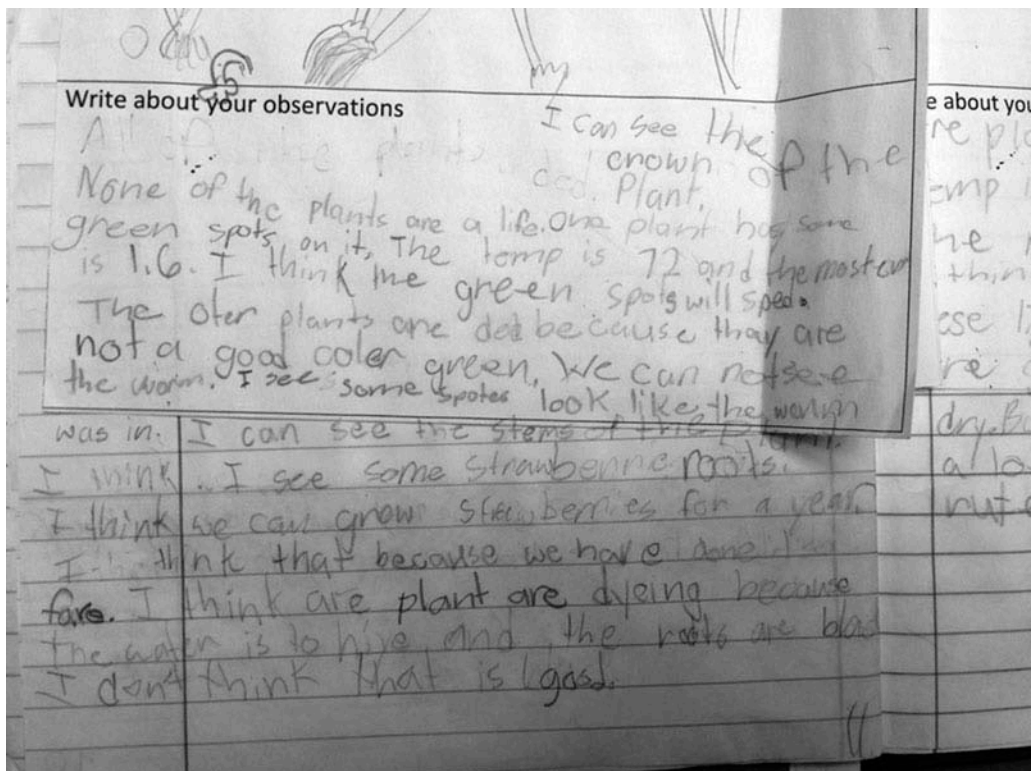 my
Write about your observations
I can see the
crown of the
Plant.
None of the plants are a life. One plant has some
green spots on it, The temp is 72 and the most
is 1.6. I think the green spots will sped.
The oter plants are ded because thay are
not a good coler green, We can not see
the worm. I see some spotes look like the worm
was in. I can see the stems of the plant.
I think. I see some strawberrie roots.
I think we can grow strawberries for a year.
I think that because we have done
fare. I think are plant are dyeing because
the water is to hive and the roots are blac
I don't think that is good.
e about you
re pl
emp
he
thin
ese l
re
dry. Bu
a lo
rut